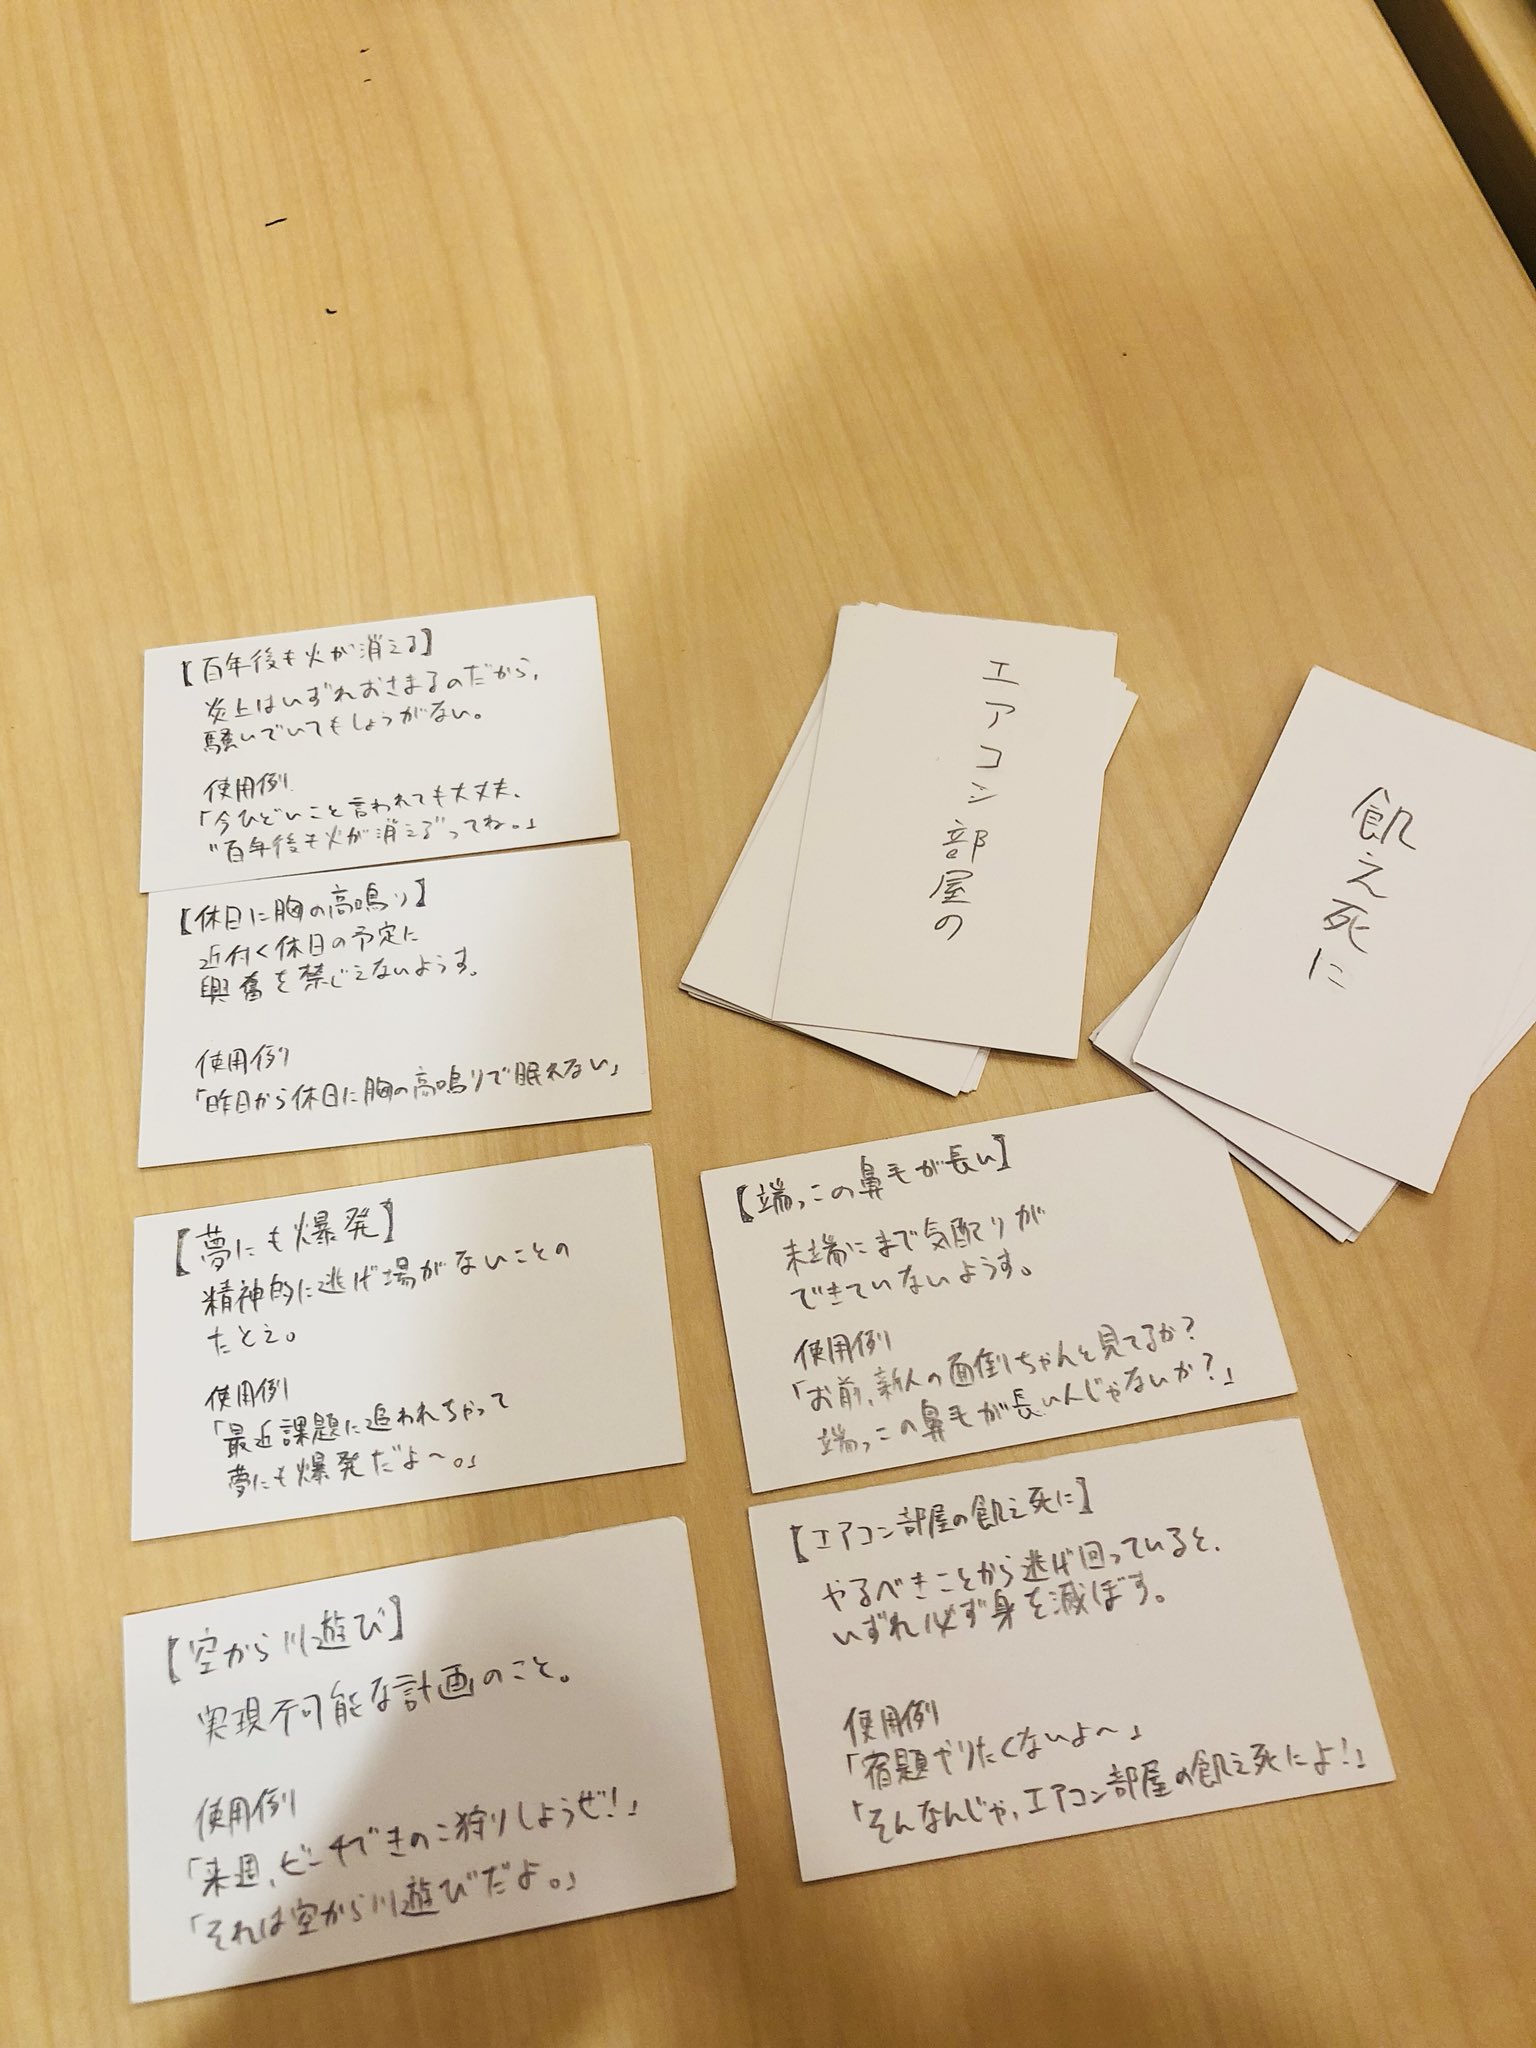 【百年後も火が消える】
炎上はいずれおさまるのだから、
騒いでいてもしょうがない。
使用例
「今ひどいこと言われても大丈夫、
"百年後も火が消える"ってね。」
【休日に胸の高鳴り】
近付く休日の予定に
興奮を禁じえないようす。
使用例
「昨日から休日に胸の高鳴りで眠れない」
【夢にも爆発】
精神的に逃げ場がないことの
たとえ。
使用例
「最近課題に追われちゃって
夢にも爆発だよ〜。」
【空から川遊び】
実現不可能な計画のこと。
使用例
「来週、ビーチできのこ狩りしようぜ!」
「それは空から川遊びだよ。」
エアコン部屋の
飢え死に
【端っこの鼻毛が長い】
末端にまで気配りが
できていないようす。
使用例
「お前、新人の面倒ちゃんと見てるか?
端っこの鼻毛が長いんじゃないか?」
【エアコン部屋の飢え死に】
やるべきことから逃げ回っていると、
いずれ必ず身を滅ぼす。
使用例
「宿題やりたくないよ〜」
「そんなんじゃ、エアコン部屋の飢え死によ!」